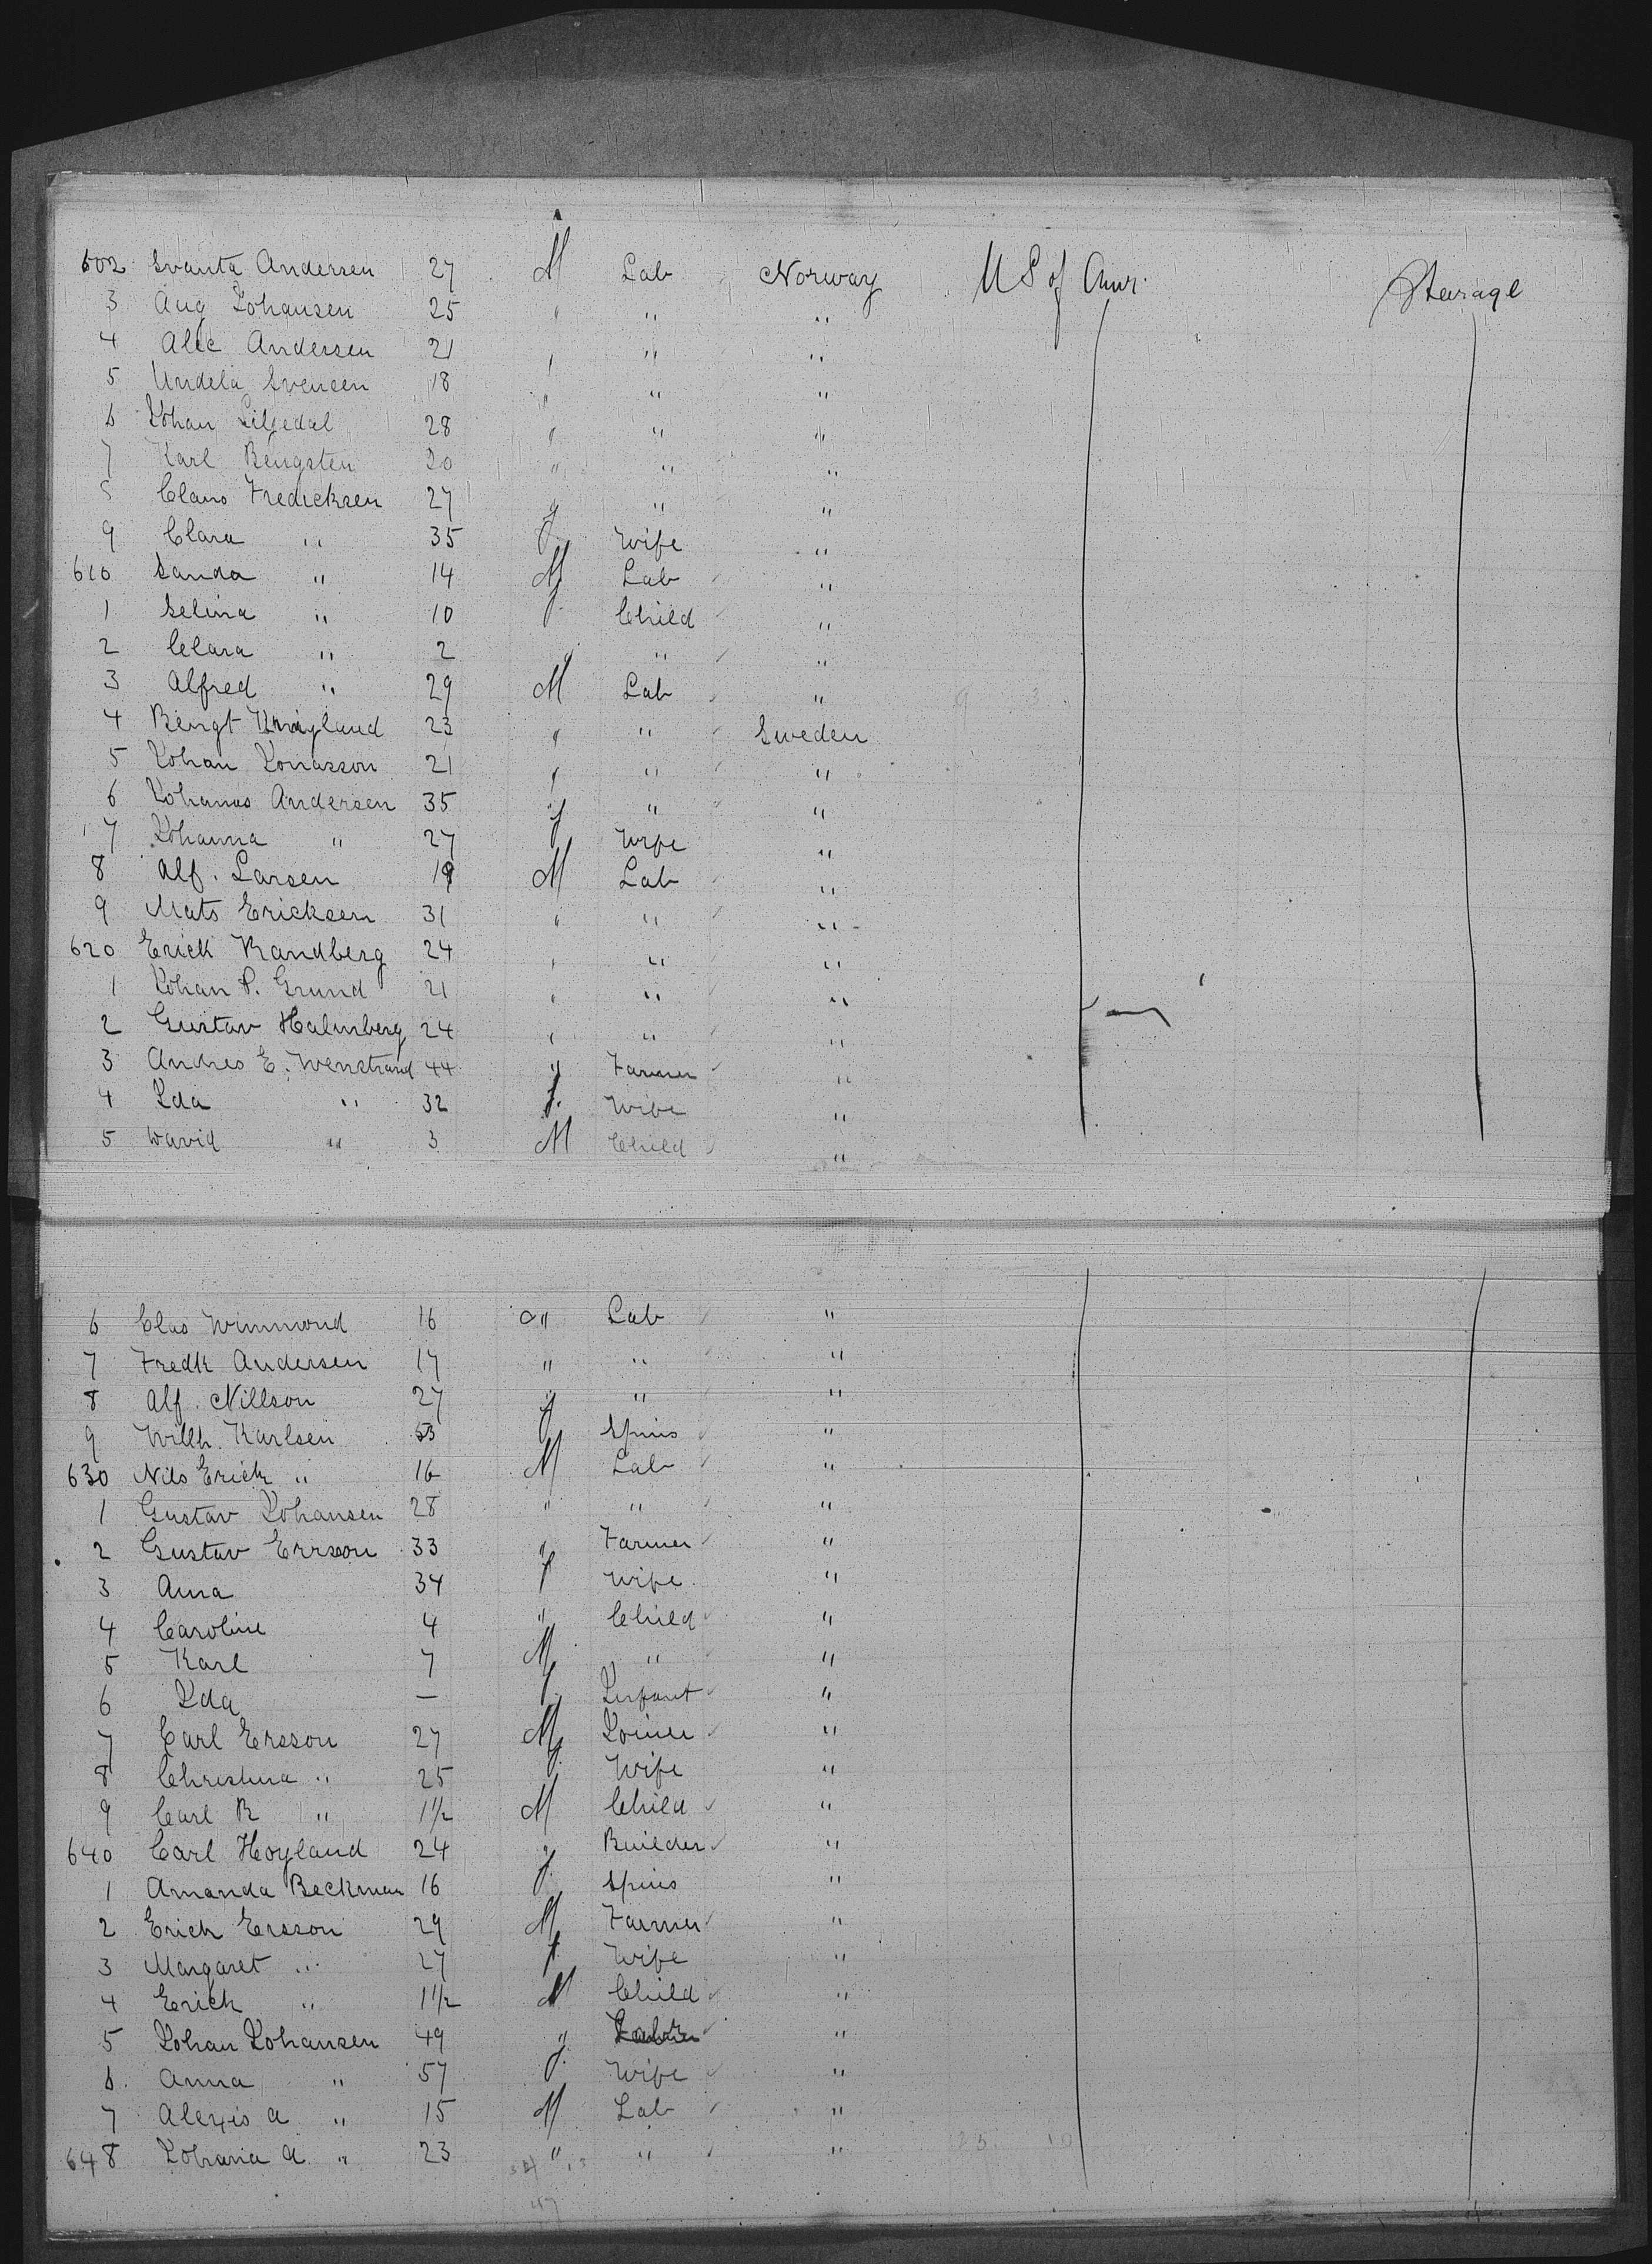 602 Svanta Andersen 27 M Lab Norway U S of Amr. Steerage
3 Aug Johansen 25 " " "
4 Alec Andersen 21 " " "
5 Undela Svensen 18 " " "
6 Johan Liljedal 28 " " "
7 Karl Bengsten 20 " " "
8 Claus Fredicksen 27 " " "
9 Clara " 35 f Wife "
610 Sanda " 14 M Lab "
1 Selina " 10 f Child "
2 Clara " 2 " " "
3 Alfred " 29 M Lab "
4 Bengt 23 " " Sweden
5 Johan Jonasson 21 " " "
6 Johanes Andersen 35 " " "
7 Johanna " 27 f Wife "
8 Alf. Larsen 19 M Lab "
9 Mats Ericksen 31 " " "
620 Erick Randberg 24 " " "
1 Johan P. Grund 21 " " "
2 Gustav Halmberg 24 " " "
3 Andres E. Wenstrand 44 " Farmer "
4 Ida " 32 f. Wife "
5 David " 3 M Child "
6 Clas Wimmond 16 " Lab "
7 Fredk Andersen 17 " " "
8 Alf. Nillson 27 " " "
9 Willh. Karlsen 53 f Spins "
630 Nils Erick " 16 M Lab "
1 Gustav Johansen 28 " " "
2 Gustav Errsson 33 " Farmer "
3 Anna 34 f Wife "
4 Caroline 4 " Child "
5 Karl 7 M " "
6 Ida — f. Infant "
7 Carl Ersson 27 M Joiner "
8 Christina " 25 f. Wife "
9 Carl R " 1 1/2 M Child "
640 Carl Hoyland 24 " Builder "
1 Amanda Beckman 16 f. Spins "
2 Erich Ersson 29 M Farmer "
3 Margaret " 27 f. Wife "
4 Erich " 1 1/2 M Child "
5 Johan Johansen 49 " "
6 Anna " 57 f. Wife "
7 Alexis A " 15 M Lab "
648 Johana A. " 23 " " "